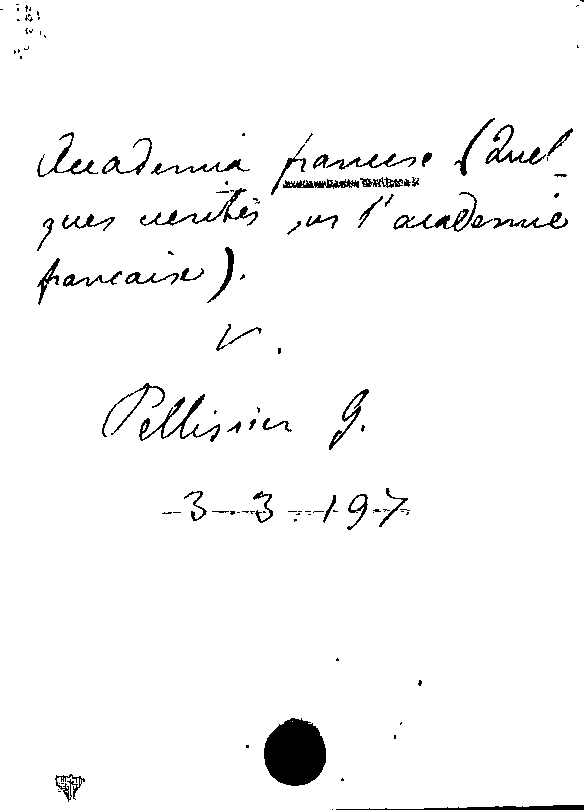 Accademia francese (Quel-
ques verités sur l'academie
française).
V.
Pellissier G.
3.3.197